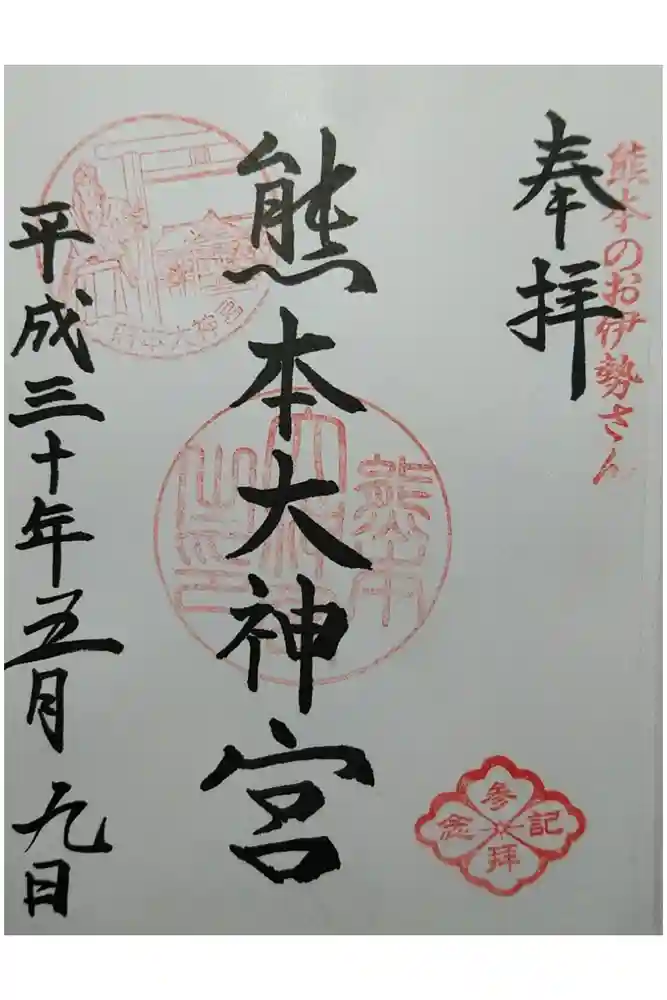 熊本のお伊勢さん
奉拝
熊本大神宮
平成三十年五月九日
参拝記念